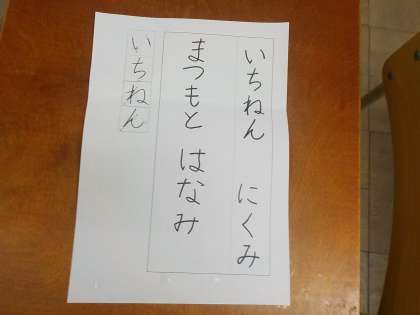 いちねん にくみ
まつもと はなみ
いちねん